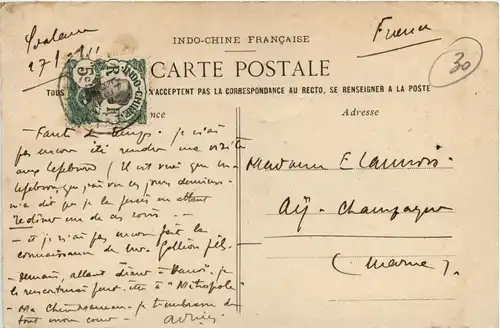 27/
France
INDO-CHINE FRANÇAISE
30
CARTE POSTALE
TOUS N'ACCEPTENT PAS LA CORRESPONDANCE AU RECTO, SE RENSEIGNER A LA POSTE
INDO-CHINE
Adresse
- Faute de temps - je n'ai
pas encore été rendre une visite
aux Lefebvre ( Il est vrai que
Lefebvre, que j'ai vu ces jours derniers
m'a dit que je le ferais en allant
dîner un de ces soirs - -
- et je n'ai pas encore fait la
connaissance de Mr. fils -
- Demain, allant dîner à Hanoï - je
le rencontrerai peut être à "Métropole"
- Ma - je t'embrasse de
tout mon coeur -
Madame E
Aÿ - Champagne
( Marne ).